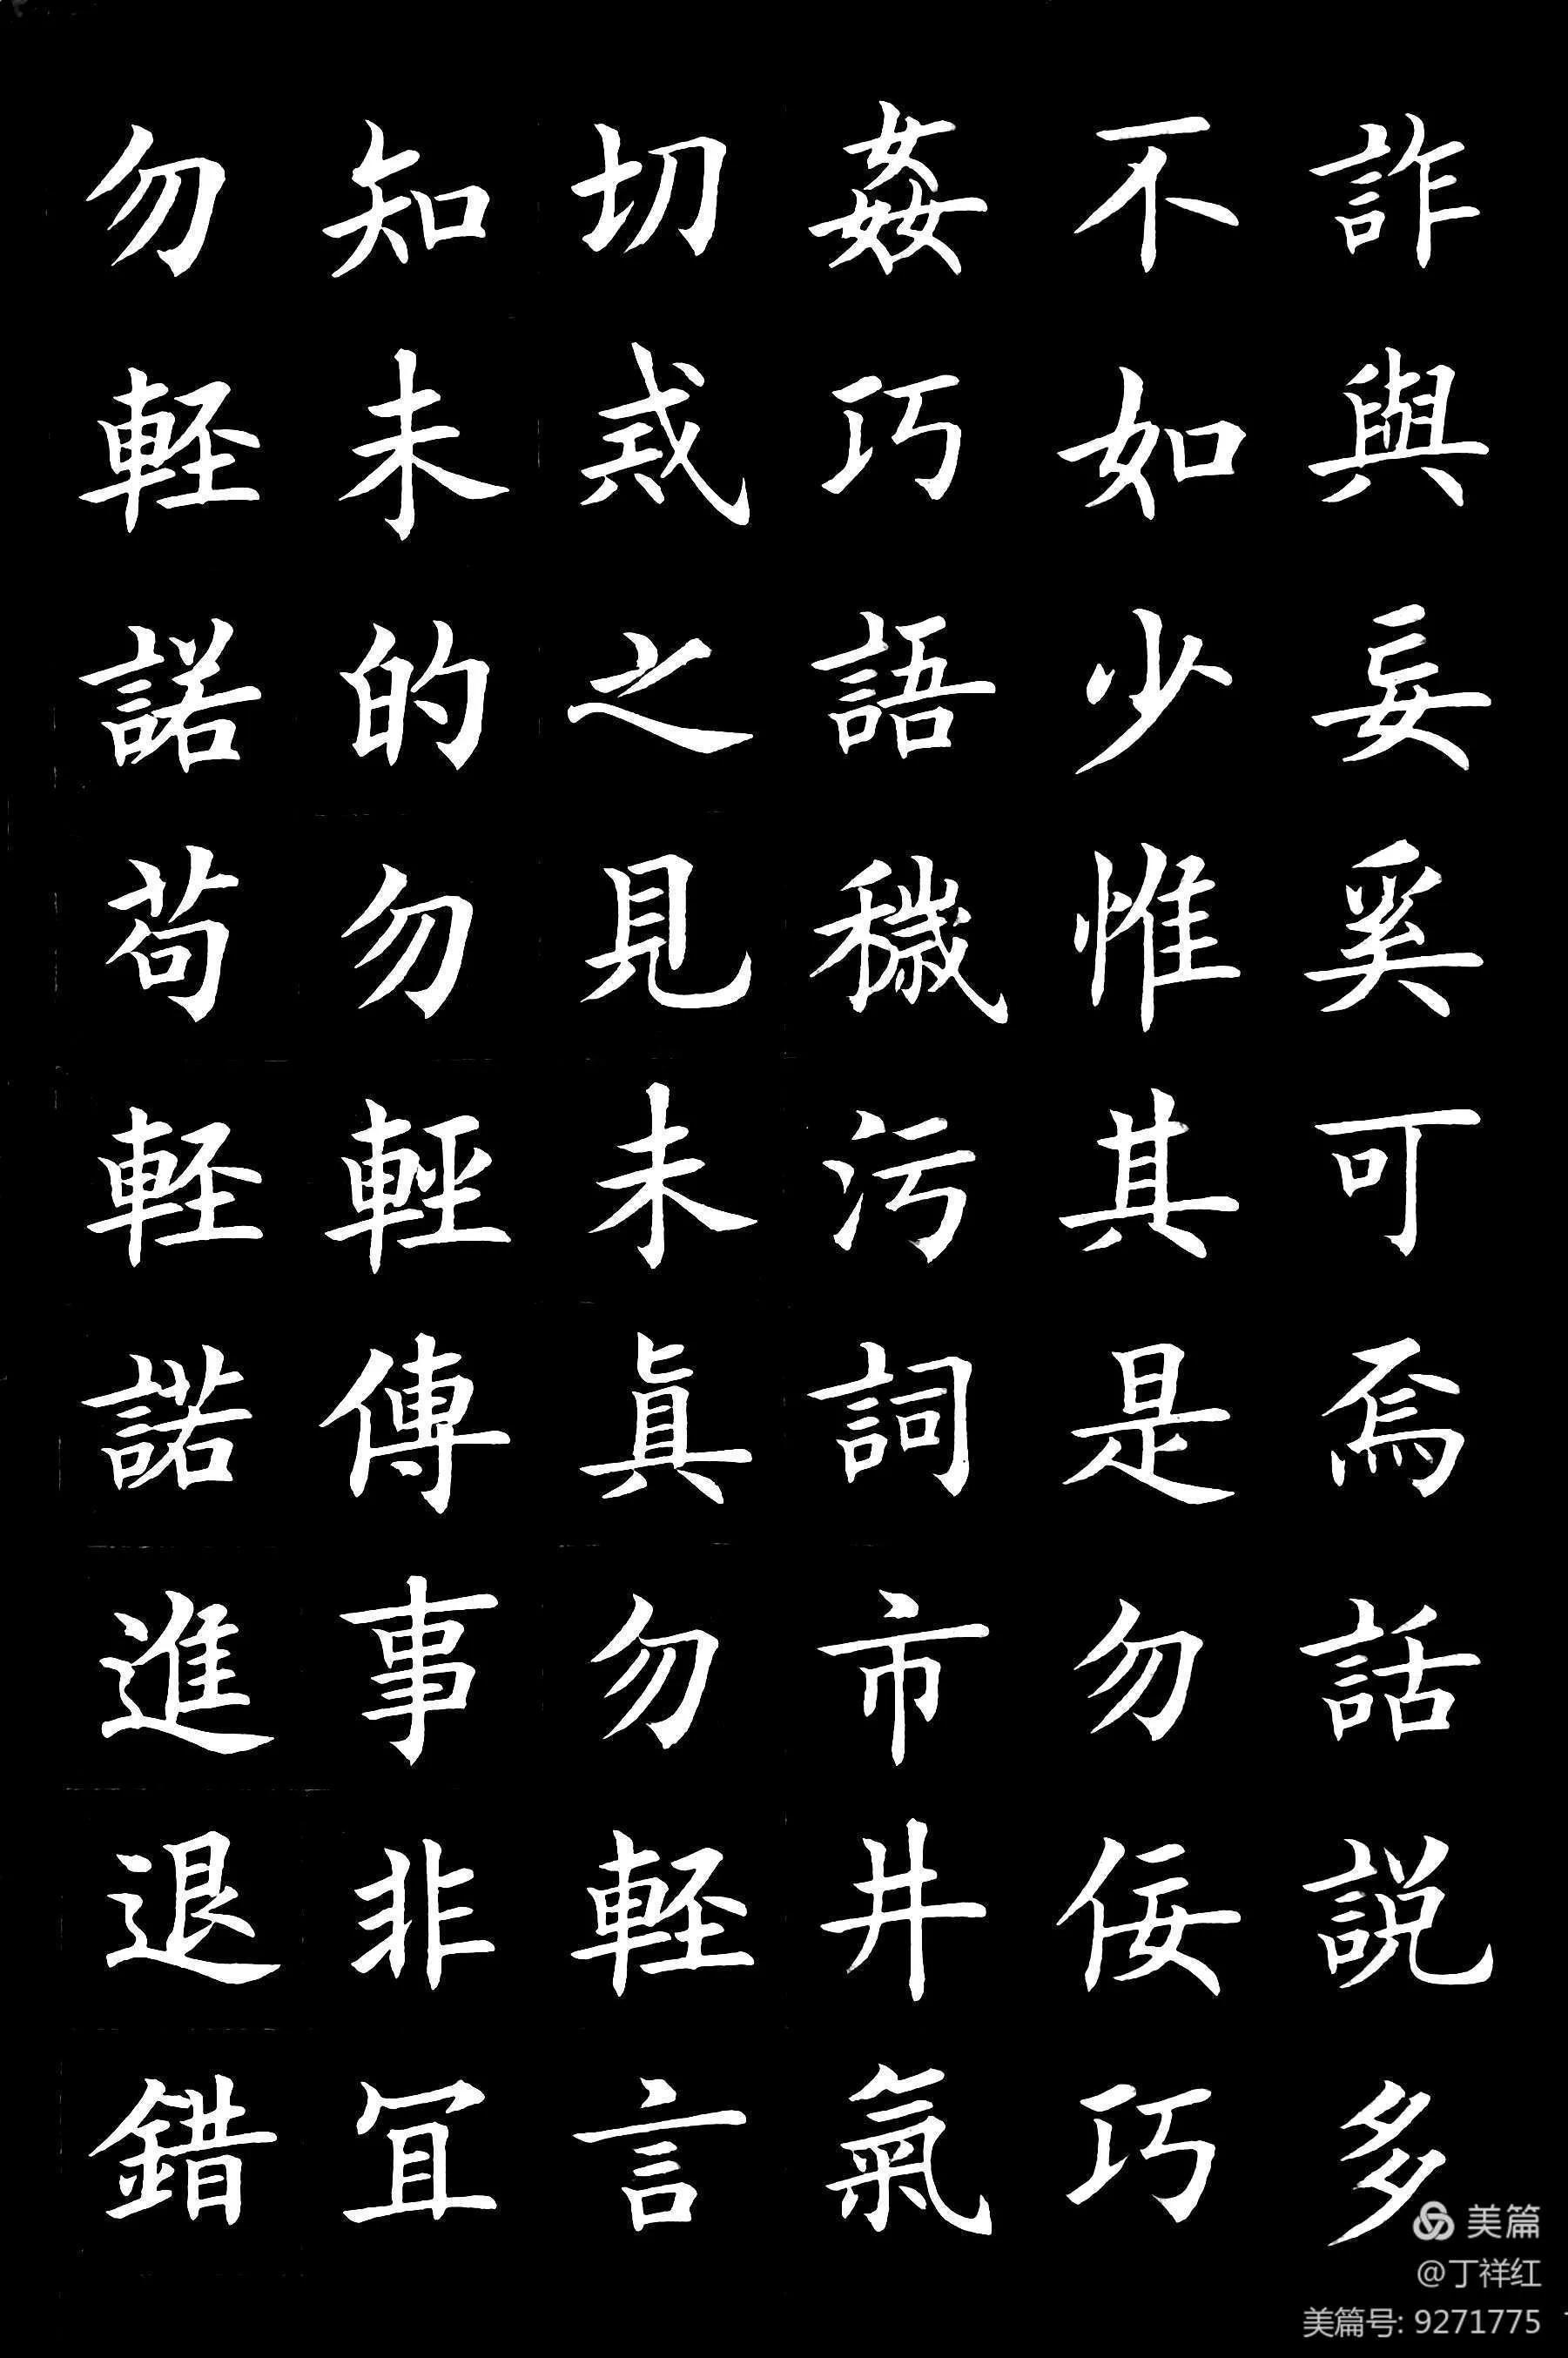 詐與妄奚可焉話説多
不如少惟其是勿佞巧
姦巧語穢污詞市井氣
切戒之見未眞勿輕言
知未的勿輕傳事非宜
勿輕諾苟輕諾進退錯
美篇
@丁祥红
美篇号: 9271775